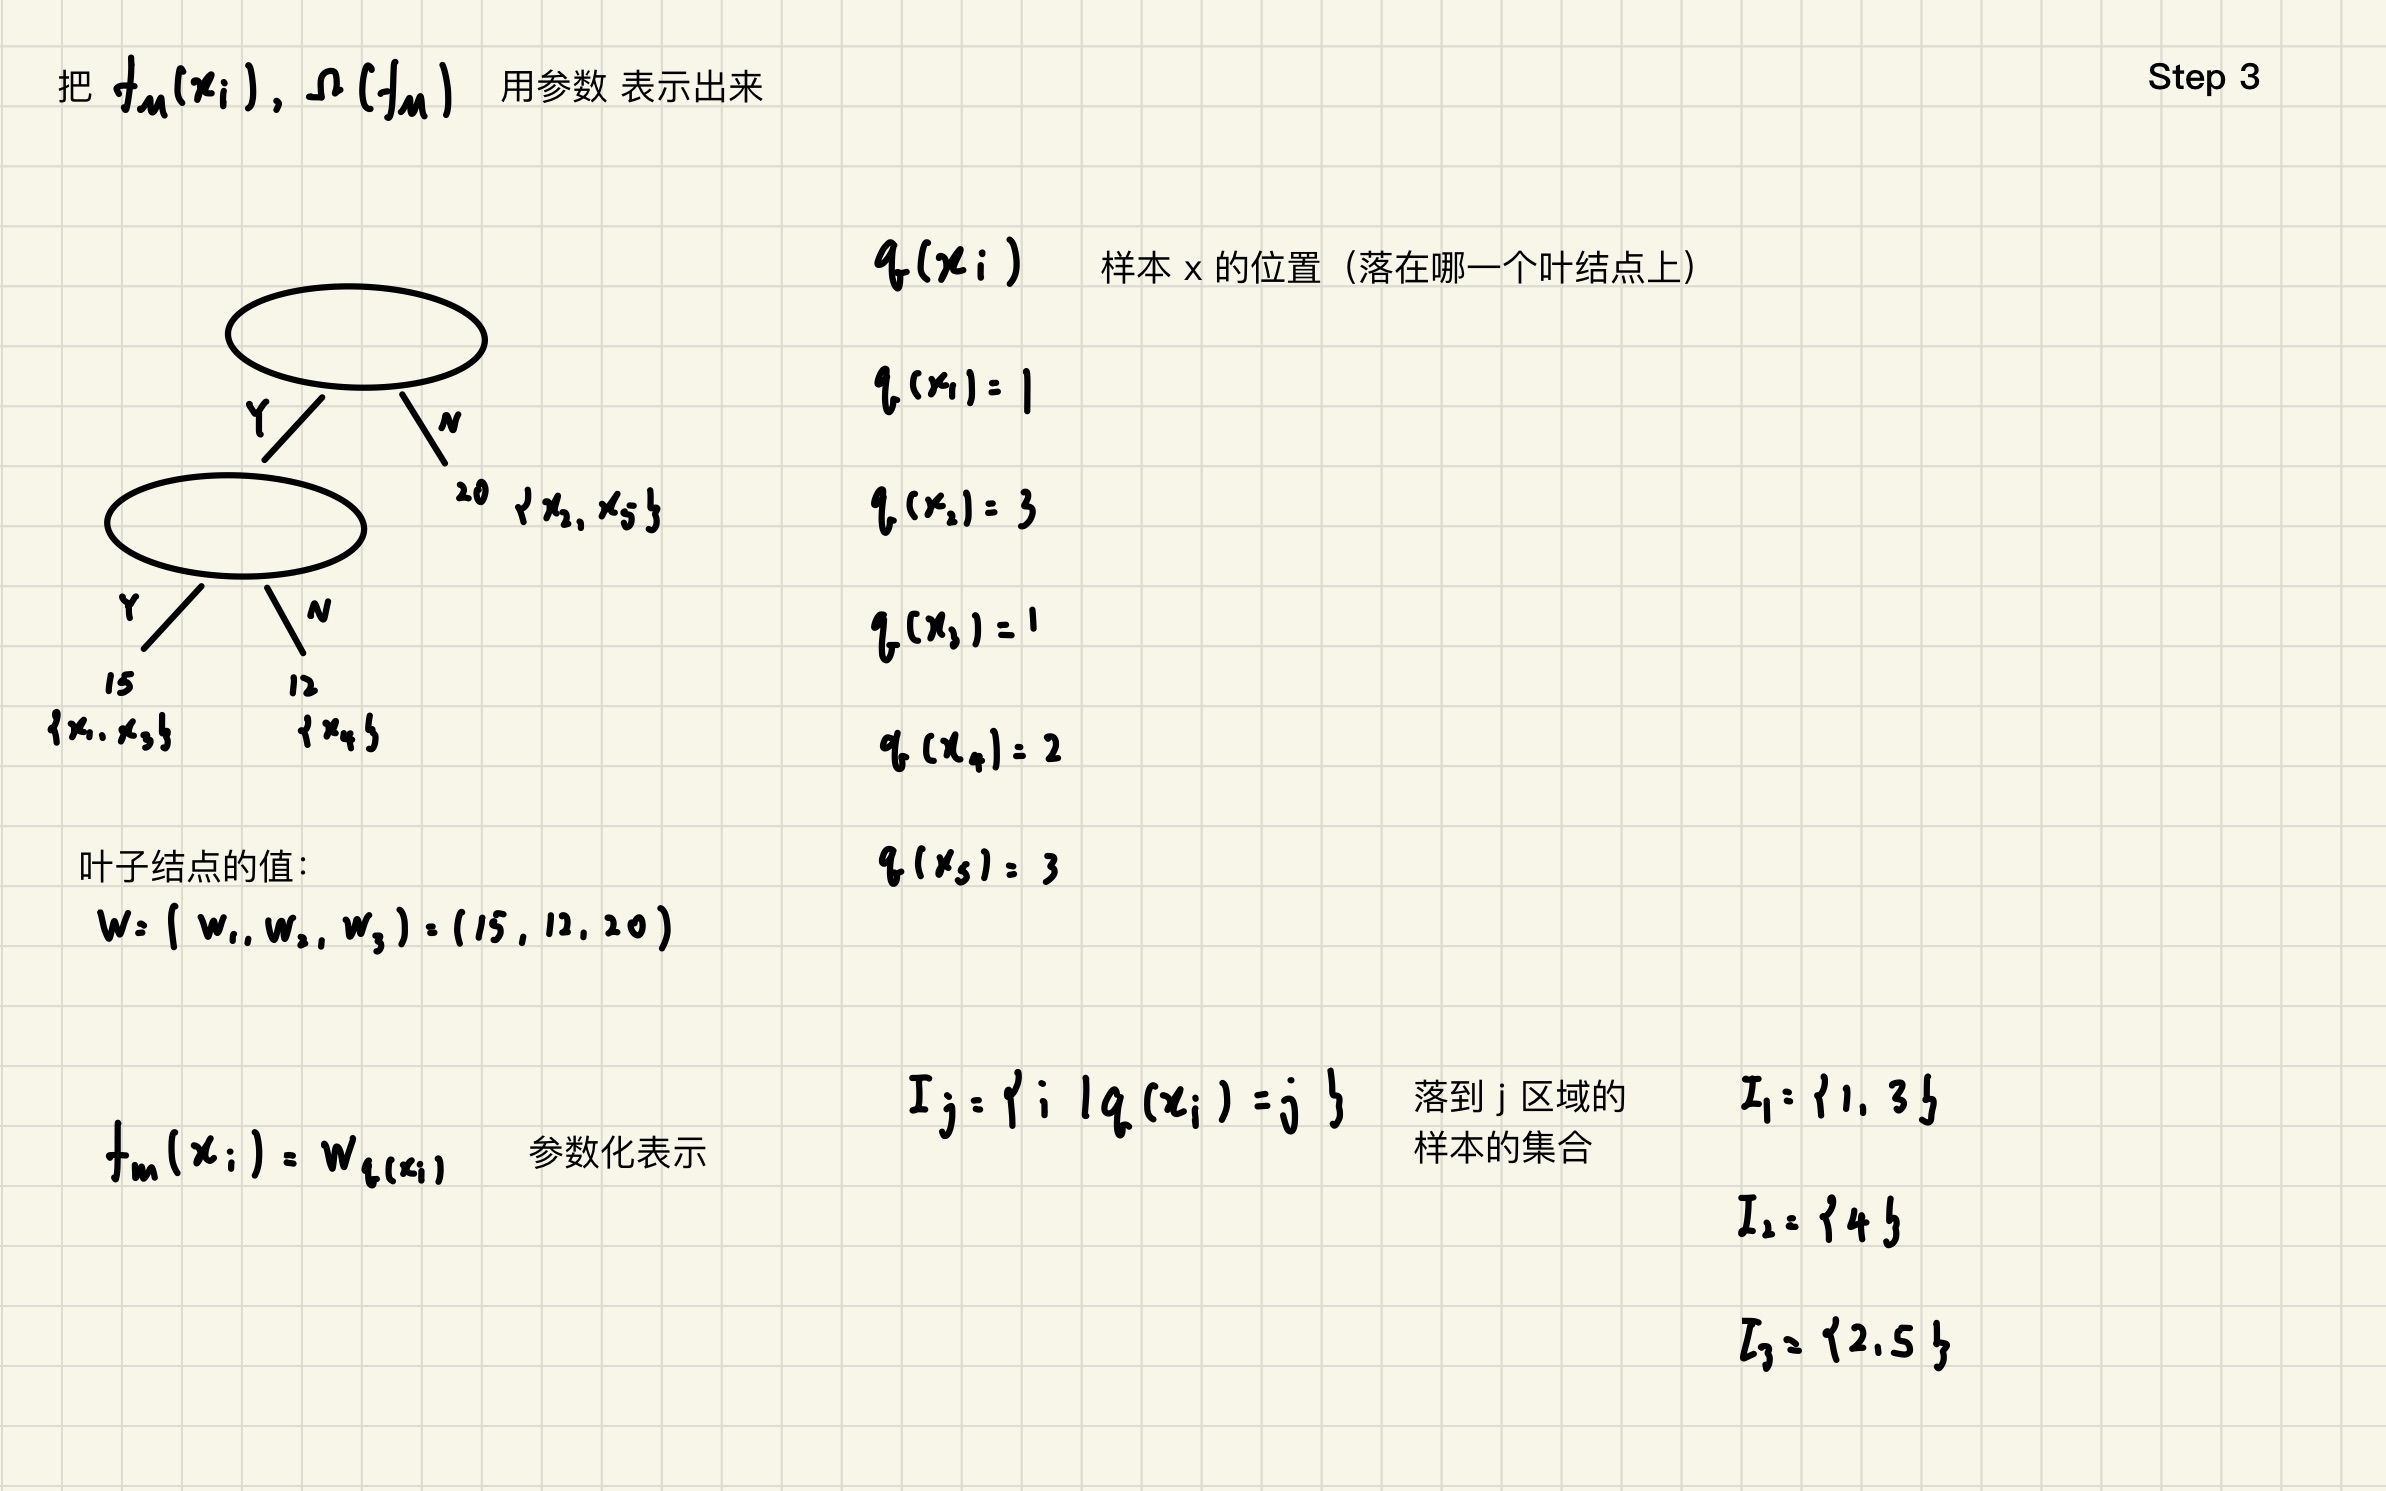 把 f_M(x_i), Ω(f_M) 用参数 表示出来
Step 3
Y
N
20 {x_2, x_5}
Y
N
15
12
{x_1, x_3}
{x_4}
叶子结点的值：
W = (w_1, w_2, w_3) = (15, 12, 20)
f_m(x_i) = w_{q(x_i)} 参数化表示
q(x_i) 样本 x 的位置（落在哪一个叶结点上）
q(x_1) = 1
q(x_2) = 3
q(x_3) = 1
q(x_4) = 2
q(x_5) = 3
I_j = {i | q(x_i) = j}
落到 j 区域的
样本的集合
I_1 = {1, 3}
I_2 = {4}
I_3 = {2, 5}